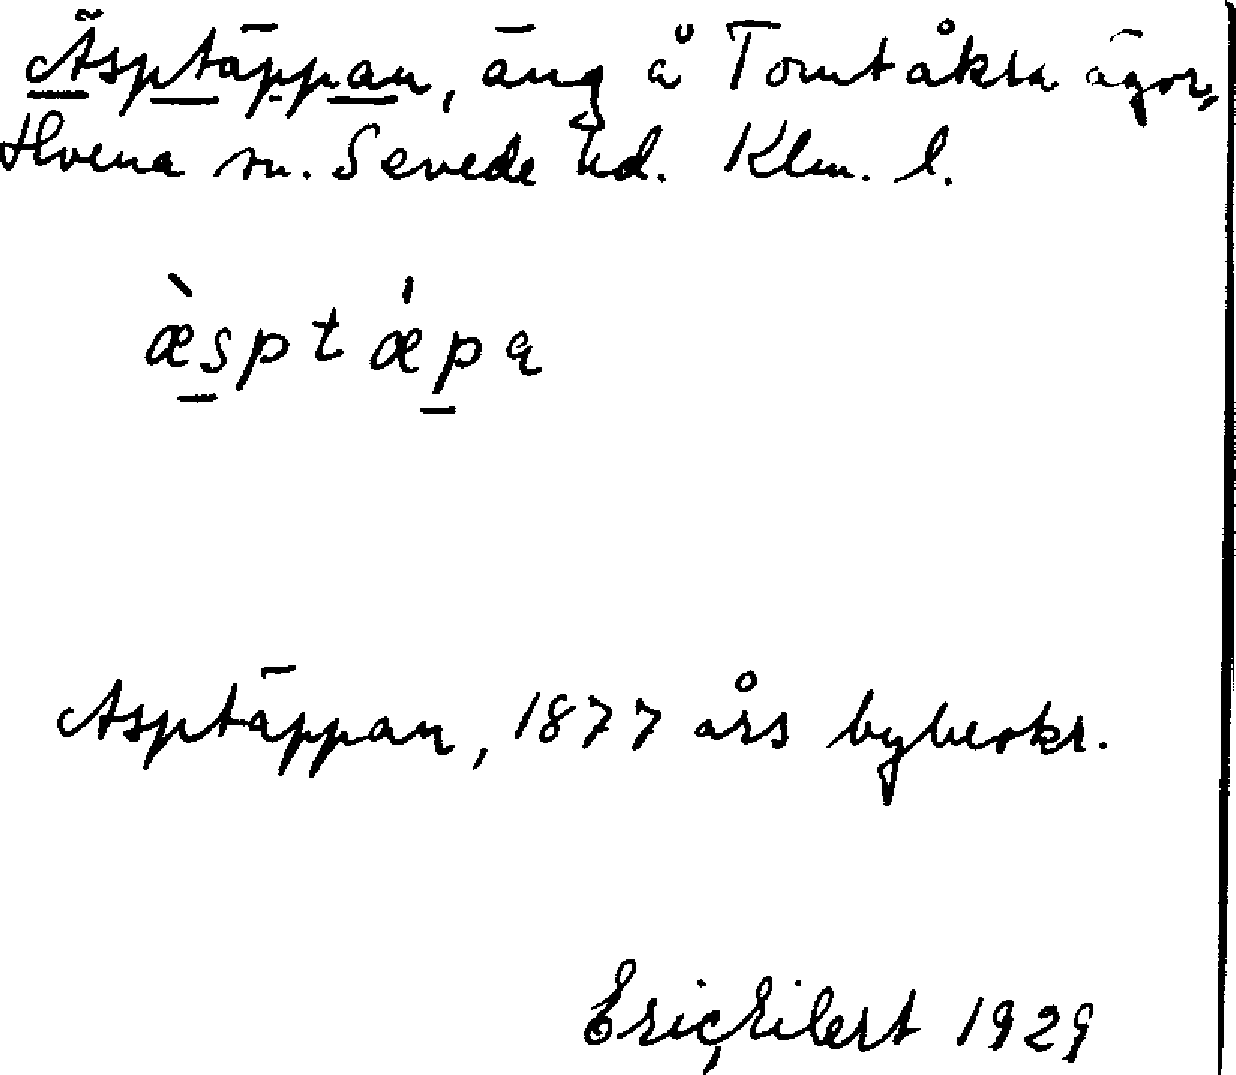 Äsptäppan, äng å Tomtåkra ägor,
Hvena sn. Sevede hd. Klm. l.
æ̀sptǽpa
Asptäppan, 1877 års bybeskr.
Eric Eilert 1929